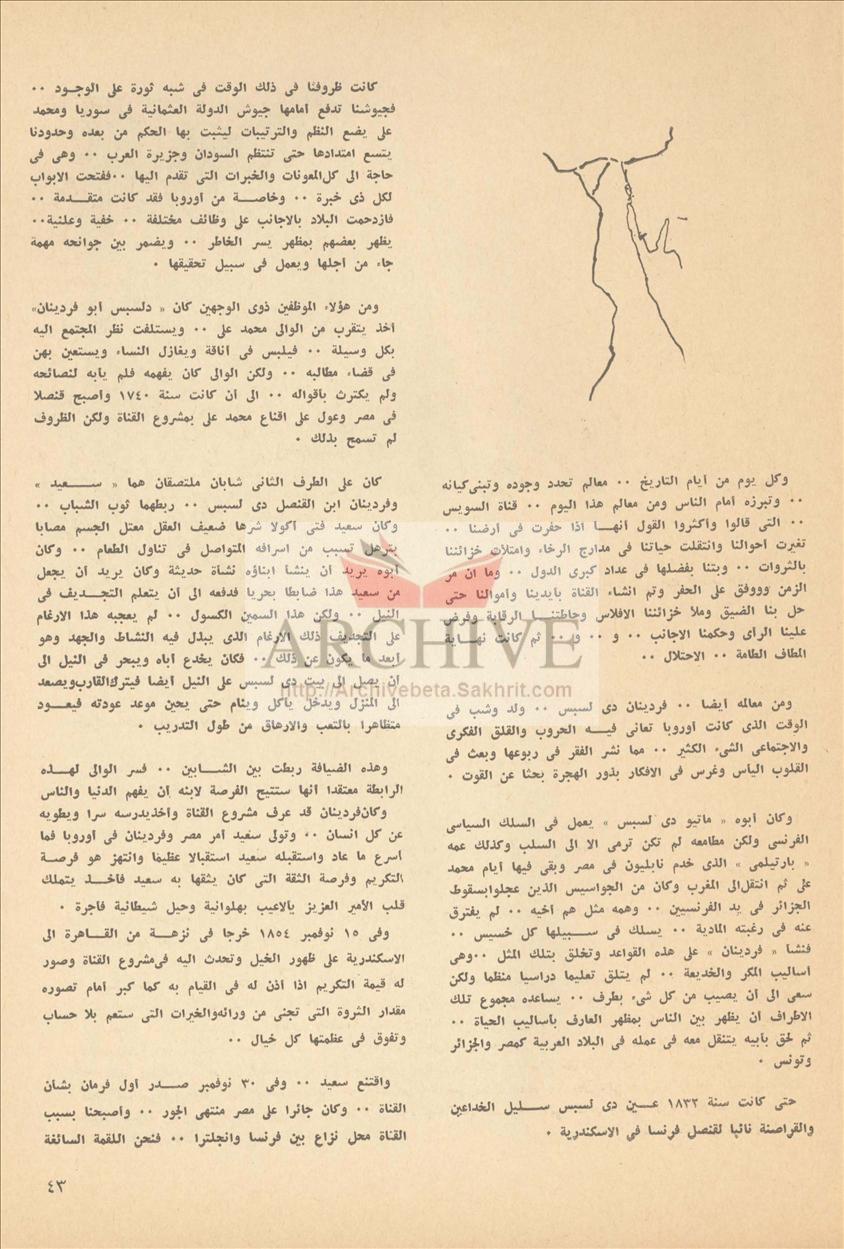 وكل يوم من أيام التاريخ ٠٠ معالم تحدد وجوده وتبنى كيانه
٠٠ وتبرزه أمام الناس ومن معالم هذا اليوم ٠٠ قناة السويس
٠٠ التى قالوا وأكثروا القول أنهـــا اذا حفرت فى أرضنا ٠٠
تغيرت أحوالنا وانتقلت حياتنا فى مدارج الرخاء وامتلأت خزائننا
بالثروات ٠٠ وبتنا بفضلها فى عداد كبرى الدول ٠٠ وما ان مر
الزمن ووفق على الحفر وتم انشاء القناة بأيدينا وأموالنا حتى
حل بنا الضيق وملأ خزائننا الافلاس وحاطتنـــا الرقابة وفرض
علينا الرأى وحكمنا الاجانب ٠٠ و ٠٠ و ٠٠ ثم كانت نهـــاية
المطاف الطامة ٠٠ الاحتلال ٠٠
ومن معالمه أيضا ٠٠ فردينان دى لسبس ٠٠ ولد وشب فى
الوقت الذى كانت أوروبا تعانى فيـــه الحروب والقلق الفكرى
والاجتماعى الشىء الكثير ٠٠ مما نشر الفقر فى ربوعها وبعث فى
القلوب اليأس وغرس فى الافكار بذور الهجرة بحثا عن القوت ٠
وكان أبوه « ماتيو دى لسبس » يعمل فى السلك السياسى
الفرنسى ولكن مطامعه لم تكن ترمى الا الى السلب وكذلك عمه
« بارتيلمى » الذى خدم نابليون فى مصر وبقى فيها أيام محمد
على ثم انتقل الى المغرب وكان من الجواسيس الذين عجلوا بسقوط
الجزائر فى يد الفرنسيين ٠٠ وهمه مثل هم أخيه ٠٠ لم يفترق
عنه فى رغبته المادية ٠٠ يسلك فى ســـبيلها كل خسيس ٠٠
فنشأ « فردينان » على هذه القواعد وتخلق بتلك المثل ٠٠ وهى
أساليب المكر والخديعة ٠٠ لم يتلق تعليما دراسيا منظما ولكن
سعى الى أن يصيب من كل شىء بطرف ٠٠ يساعده مجموع تلك
الاطراف أن يظهر بين الناس بمظهر العارف بأساليب الحياة ٠٠
ثم لحق بأبيه يتنقل معه فى عمله فى البلاد العربية كمصر والجزائر
وتونس ٠
حتى كانت سنة ١٨٣٢ عـــين دى لسبس ســـليل الخداعين
والقراصنة نائبا لقنصل فرنسا فى الاسكندرية ٠
كانت ظروفنا فى ذلك الوقت فى شبه ثورة على الوجـــود ٠٠
فجيوشنا تدفع أمامها جيوش الدولة العثمانية فى سوريا ومحمد
على يضع النظم والترتيبات ليثبت بها الحكم من بعده وحدودنا
يتسع امتدادها حتى تنتظم السودان وجزيرة العرب ٠٠ وهى فى
حاجة الى كل المعونات والخبرات التى تقدم اليها ٠٠ ففتحت الابواب
لكل ذى خبرة ٠٠ وخاصـــة من أوروبا فقد كانت متقـــدمة ٠٠
فازدحمت البلاد بالاجانب على وظائف مختلفة ٠٠ خفية وعلنية ٠٠
يظهر بعضهم بمظهر يسر الخاطر ٠٠ ويضمر بين جوانحه مهمة
جاء من أجلها ويعمل فى سبيل تحقيقها ٠
ومن هؤلاء الموظفين ذوى الوجهين كان « دلسبس أبو فردينان»
أخذ يتقرب من الوالى محمد على ٠٠ ويستلفت نظر المجتمع اليه
بكل وسيلة ٠٠ فيلبس فى أناقة ويغازل النساء ويستعين بهن
فى قضاء مطالبه ٠٠ ولكن الوالى كان يفهمه فلم يأبه لنصائحه
ولم يكترث بأقواله ٠٠ الى أن كانت سنة ١٧٤٠ وأصبح قنصلا
فى مصر وعول على اقناع محمد على بمشروع القناة ولكن الظروف
لم تسمح بذلك ٠
كان على الطرف الثانى شابان ملتصقان هما « ســـعيد »
وفردينان ابن القنصل دى لسبس ٠٠ ربطهما ثوب الشباب ٠٠
وكان سعيد فتى أكولا شرها ضعيف العقل معتل الجسم مصابا
بترهل تسبب من اسرافه المتواصل فى تناول الطعام ٠٠ وكان
أبوه يريد أن ينشأ أبناؤه نشأة حديثة وكان يريد أن يجعل
من سعيد هذا ضابطا بحريا فدفعه الى أن يتعلم التجـــديف فى
النيل ٠٠ ولكن هذا السمين الكسول ٠٠ لم يعجبه هذا الارغام
على التجديف ذلك الارغام الذى يبذل فيه النشاط والجهد وهو
أبعد ما يكون عن ذلك ٠٠ فكان يخدع أباه ويبحر فى النيل الى
أن يصل الى بيت دى لسبس على النيل أيضا فيترك القارب ويصعد
الى المنزل ويدخل يأكل وينام حتى يحين موعد عودته فيعـــود
متظاهرا بالتعب والارهاق من طول التدريب ٠
وهذه الضيافة ربطت بين الشـــابين ٠٠ فسر الوالى لهـــذه
الرابطة معتقدا أنها ستتيح الفرصة لابنه أن يفهم الدنيا والناس
وكان فردينان قد عرف مشروع القناة وأخذ يدرسه سرا ويطويه
عن كل انسان ٠٠ وتولى سعيد أمر مصر وفردينان فى أوروبا فما
أسرع ما عاد واستقبله سعيد استقبالا عظيما وانتهز هو فرصـــة
التكريم وفرصة الثقة التى كان يثقها به سعيد فأخـــذ يتملك
قلب الأمير العزيز بألاعيب بهلوانية وحيل شيطانية فاجرة ٠
وفى ١٥ نوفمبر ١٨٥٤ خرجا فى نزهـــة من القـــاهرة الى
الاسكندرية على ظهور الخيل وتحدث اليه فى مشروع القناة وصور
له قيمة التكريم اذا أذن له فى القيام به كما كبر أمام تصوره
مقدار الثروة التى تجنى من ورائه والخيرات التى ستعم بلا حساب
وتفوق فى عظمتها كل خيال ٠٠
واقتنع سعيد ٠٠ وفى ٣٠ نوفمبر صـــدر أول فرمان بشأن
القناة ٠٠ وكان جائرا على مصر منتهى الجور ٠٠ وأصبحنا بسبب
القناة محل نزاع بين فرنسا وانجلترا ٠٠ فنحن اللقمة السائغة
٤٣
ARCHIVE
http://Archivebeta.Sakhrit.com